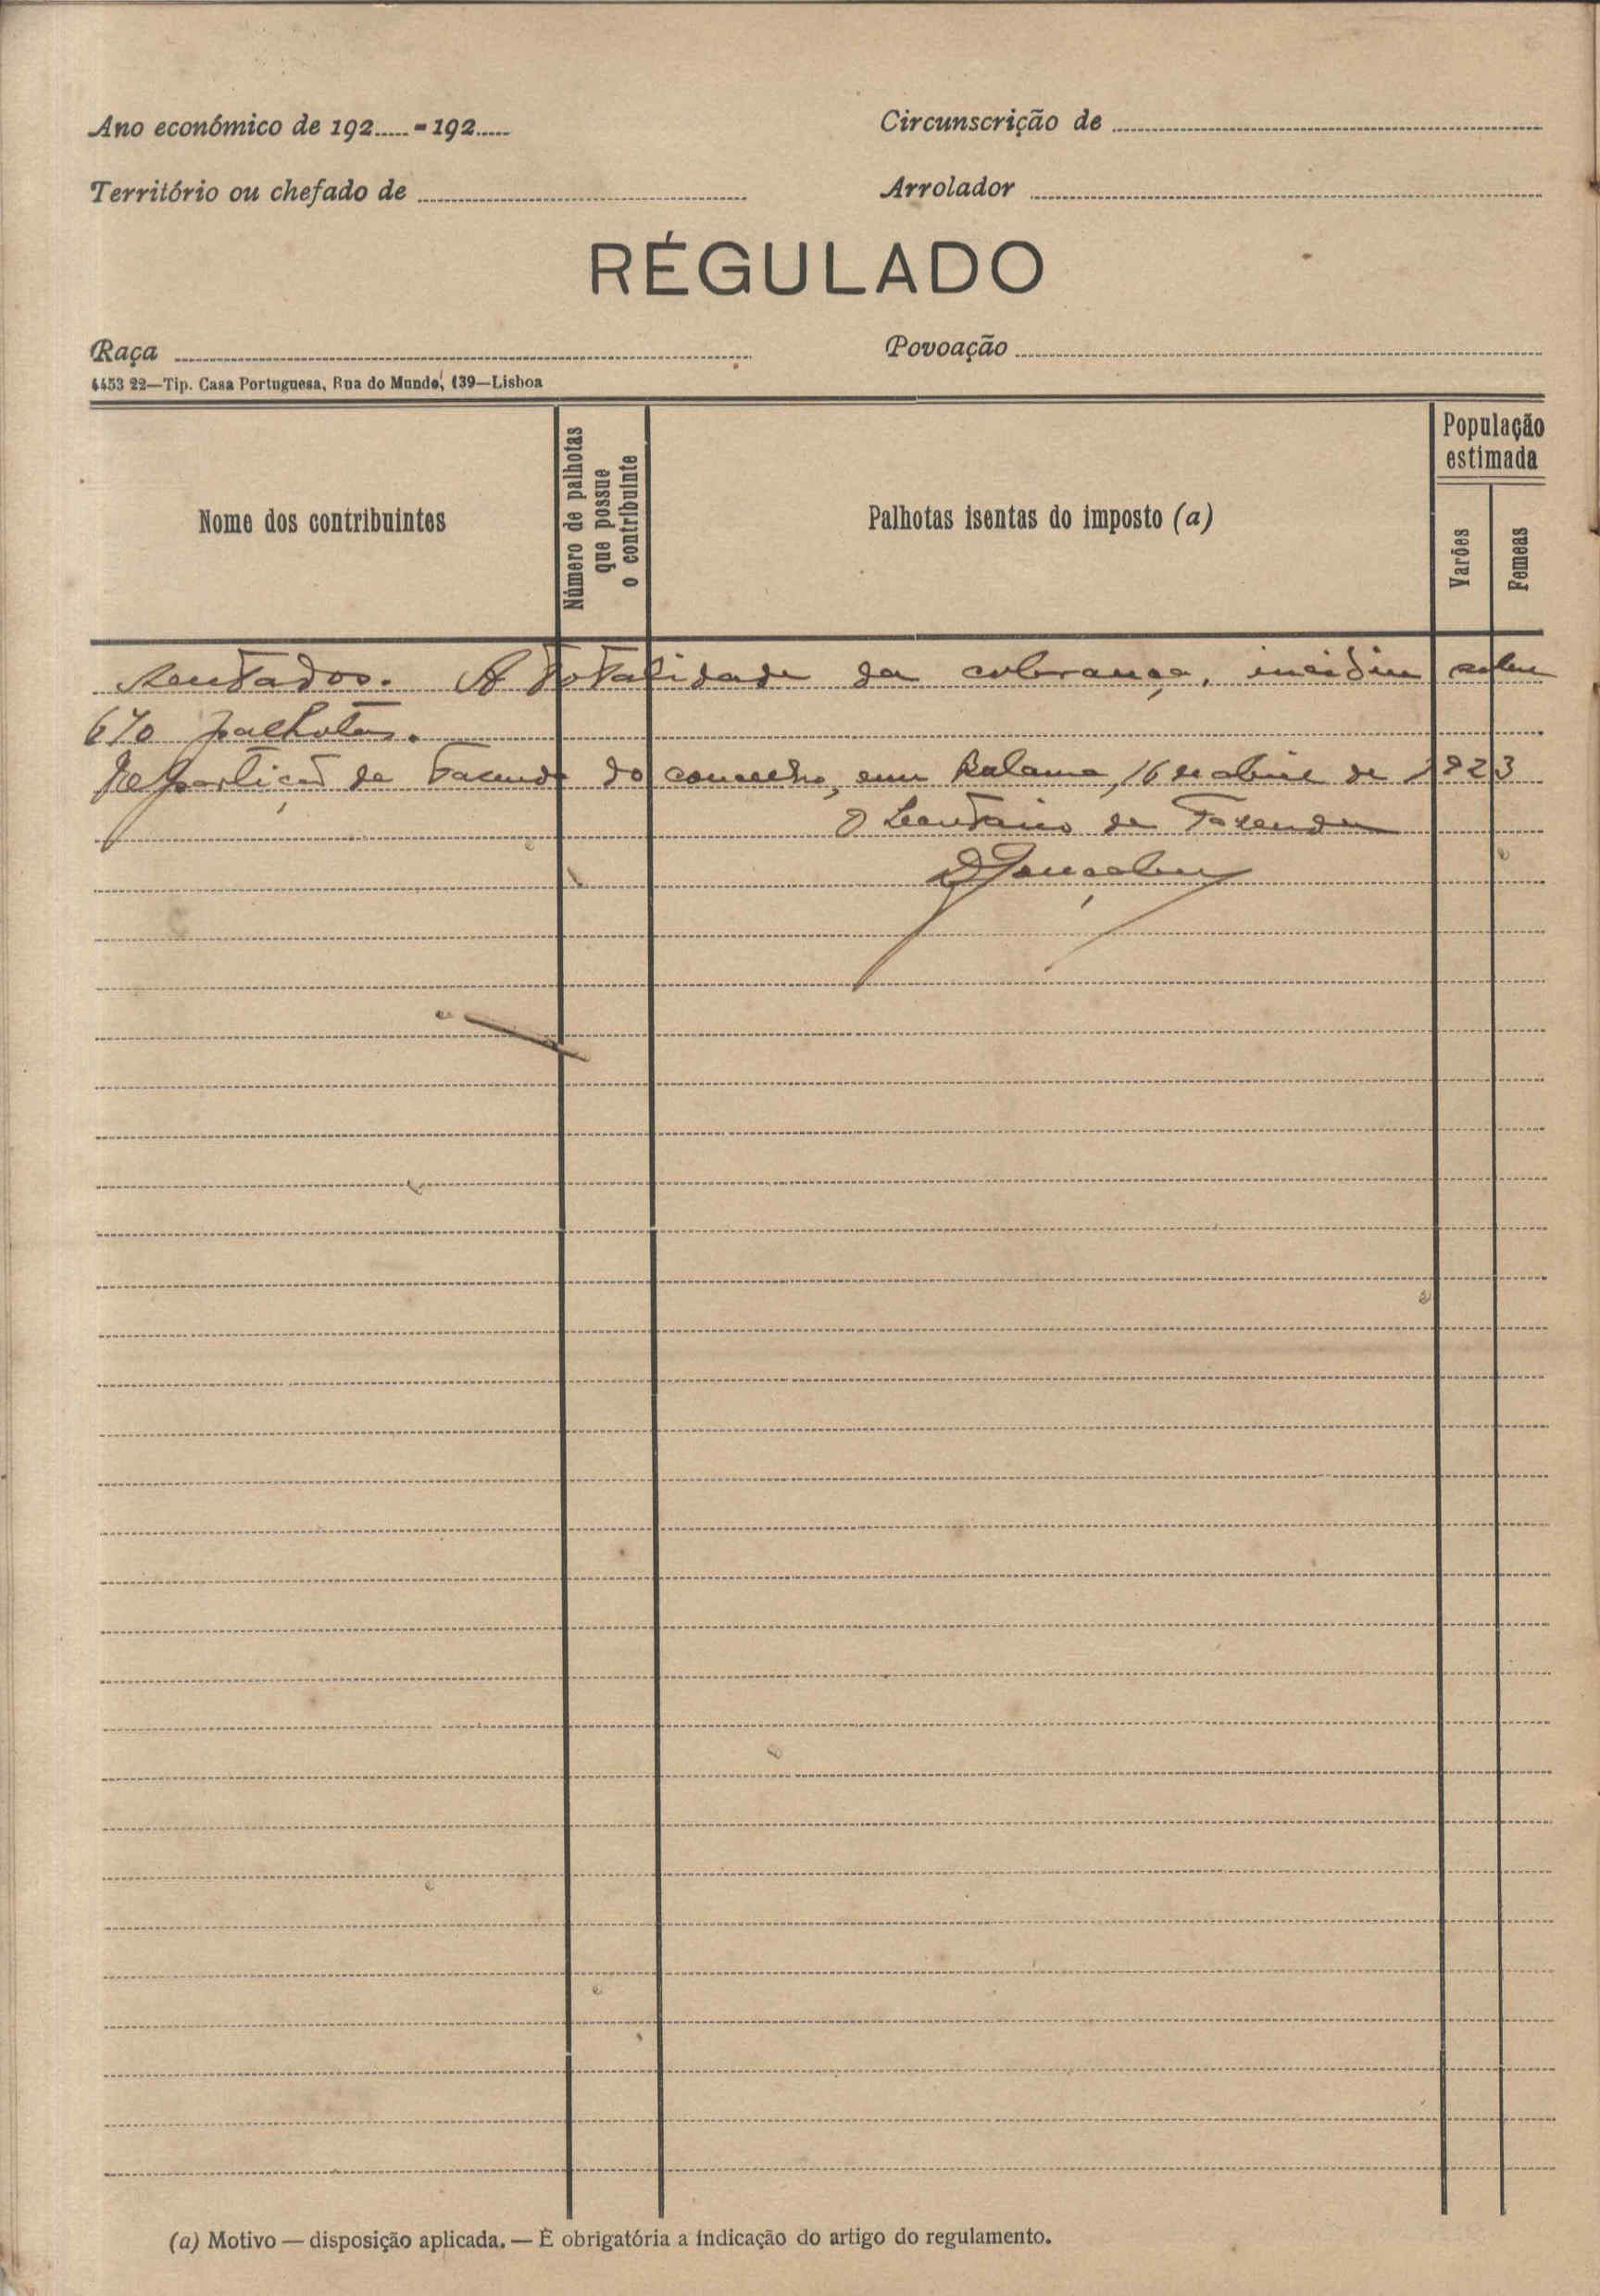 Ano económico de 192..... - 192.....
Circunscrição de
Território ou chefado de
Arrolador
RÉGULADO
Raça
Povoação
4453 22—Tip. Casa Portuguesa, Rua do Mundo, 139—Lisboa
Nome dos contribuintes
Número de palhotas
que possue
o contribuinte
Palhotas isentas do imposto (a)
População
estimada
Varões
Femeas
sentados. A totalidade da cobrança, incidiu sobre
670 palhotas.
Repartição de Fazenda do concelho, em Bolama, 16 de abril de 1923
O de Fazenda
Gonçalves
(a) Motivo — disposição aplicada. — É obrigatória a indicação do artigo do regulamento.